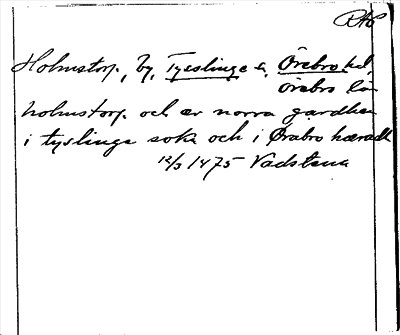 RAP
Holmstorp, by, Tysslinge s., Örebro hd,
Örebro län
holmstorp och ær norra gardhen
i tyslinge sokn och i Ørabro hæradh
12/3 1475 Vadstena